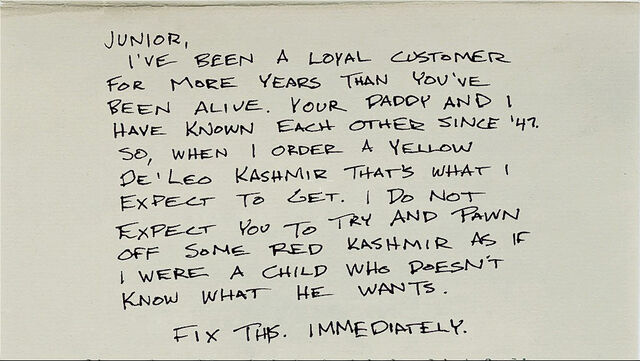 JUNIOR,
I'VE BEEN A LOYAL CUSTOMER
FOR MORE YEARS THAN YOU'VE
BEEN ALIVE. YOUR DADDY AND I
HAVE KNOWN EACH OTHER SINCE '47.
SO, WHEN I ORDER A YELLOW
DE'LEO KASHMIR THAT'S WHAT I
EXPECT TO GET. I DO NOT
EXPECT YOU TO TRY AND PAWN
OFF SOME RED KASHMIR AS IF
I WERE A CHILD WHO DOESN'T
KNOW WHAT HE WANTS.
FIX THS. IMMEDIATELY.